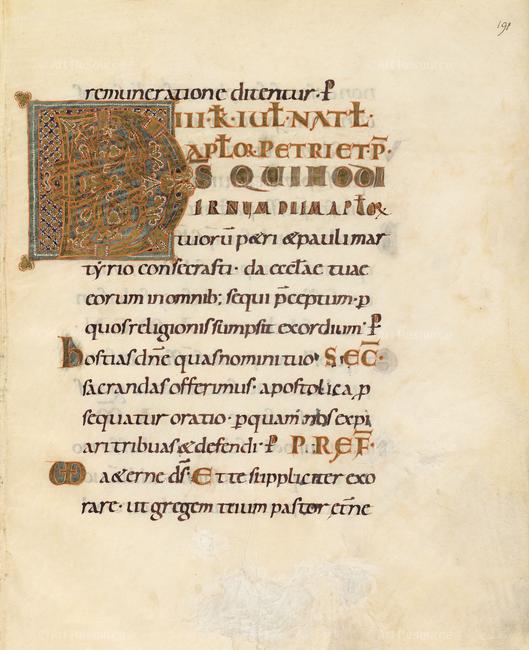 191
remuneratione ditentur· P
IIII·K·IUL·NATL·
APLOR·PETRI ET·P·
DS QUI HODI
ERNUM DIEM APLOR
tuorū petri & pauli mar
tyrio consecrasti· da ecclae tuae
eorum in omnib; sequi p̄ceptum· p
quos religionis sumpsit exordium· P
hostias dn̄e quas nomini tuo SEC̄·
sacrandas offerimus· apostolica p
sequatur oratio· p quam nobis expi
ari tribuas & defendi· P PREF̄·
a & erne ds̄· Et te suppliciter exo
rare· ut gregem tuum pastor et̄ne